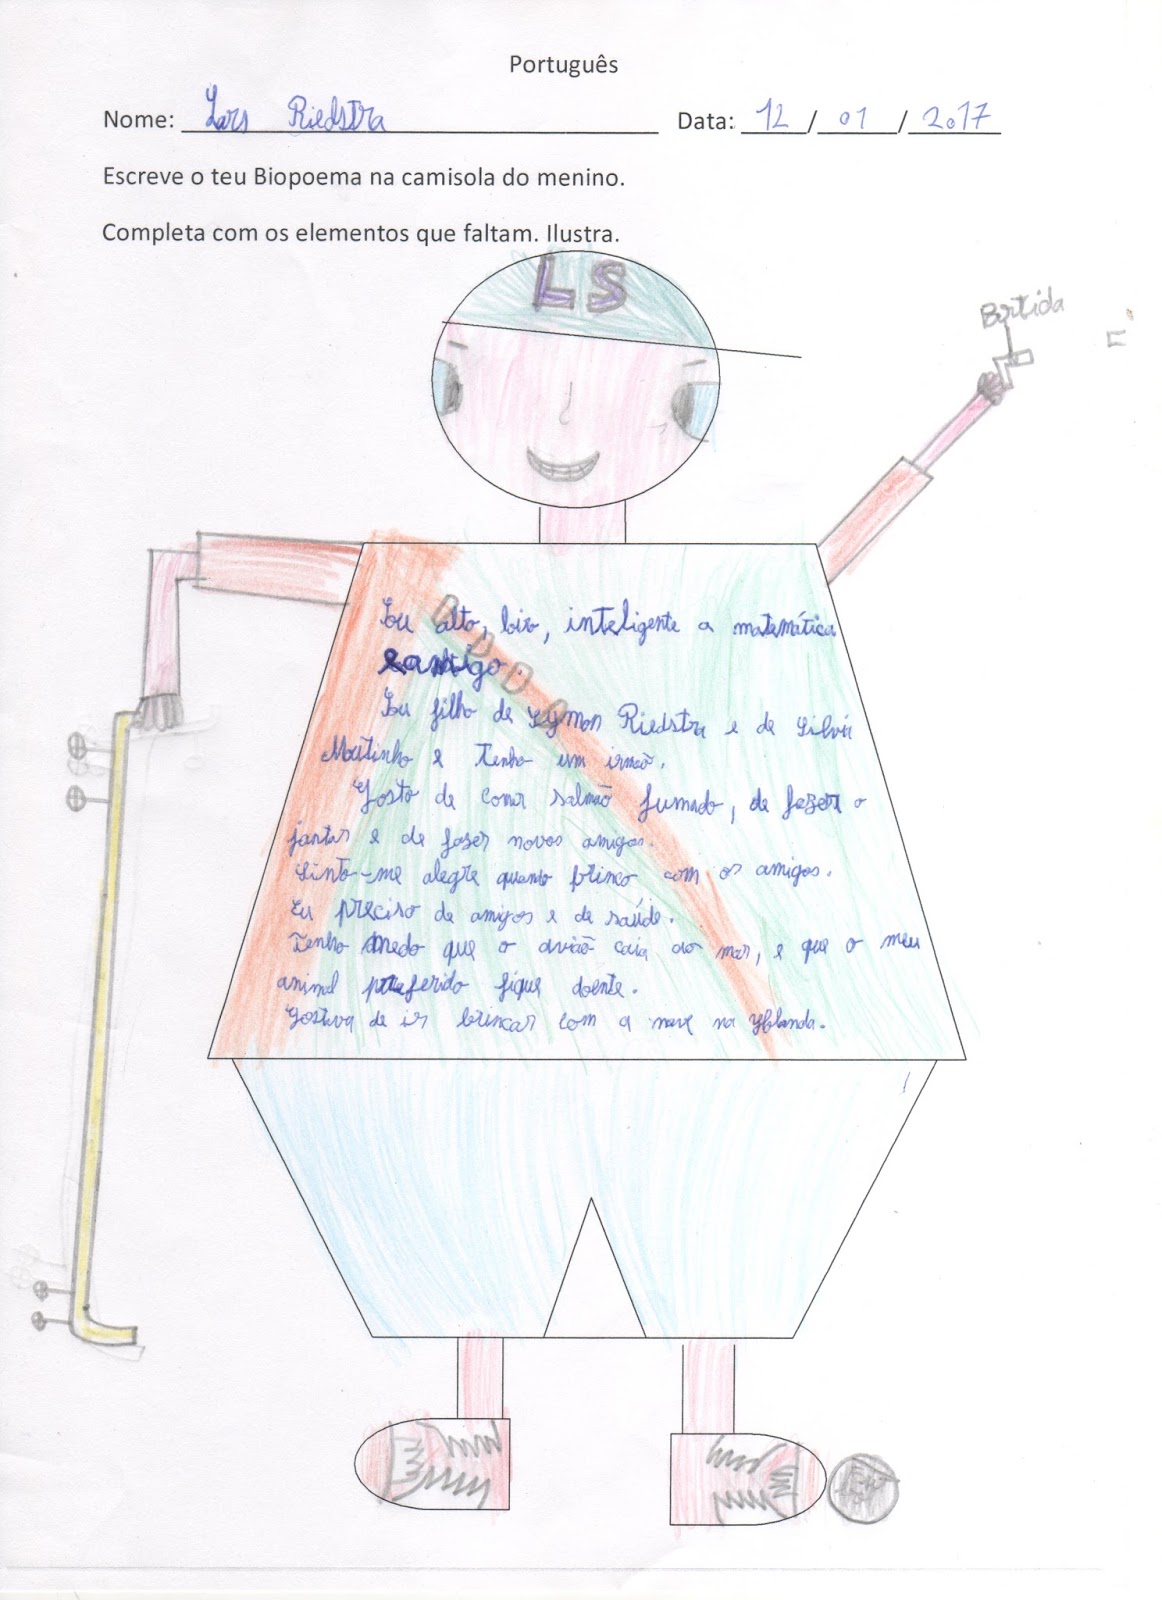 Português
Nome: Lars Riedstra Data: 12/01/2017
Escreve o teu Biopoema na camisola do menino.
Completa com os elementos que faltam. Ilustra.
LS
Partida
Eu alto, loiro, inteligente a matemática
e amigo.
Eu filho de Symon Riedstra e de Silvia
Moutinho e tenho um irmão.
Gosto de comer salmão fumado, de fazer o
jantar e de fazer novos amigos.
Sinto-me alegre quando brinco com os amigos.
Eu preciso de amigos e de saúde.
Tenho medo que o avião caia ao mar, e que o meu
animal preferido fique doente.
Gostava de ir brincar com a neve na Holanda.